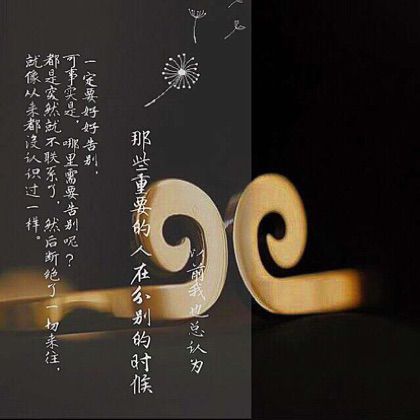 以前我也总认为
那些重要的人在分别的时候
一定要好好告别，
可事实是，哪里需要告别呢？
都是突然就不联系了，然后断绝了一切来往，
就像从来都没认识过一样。